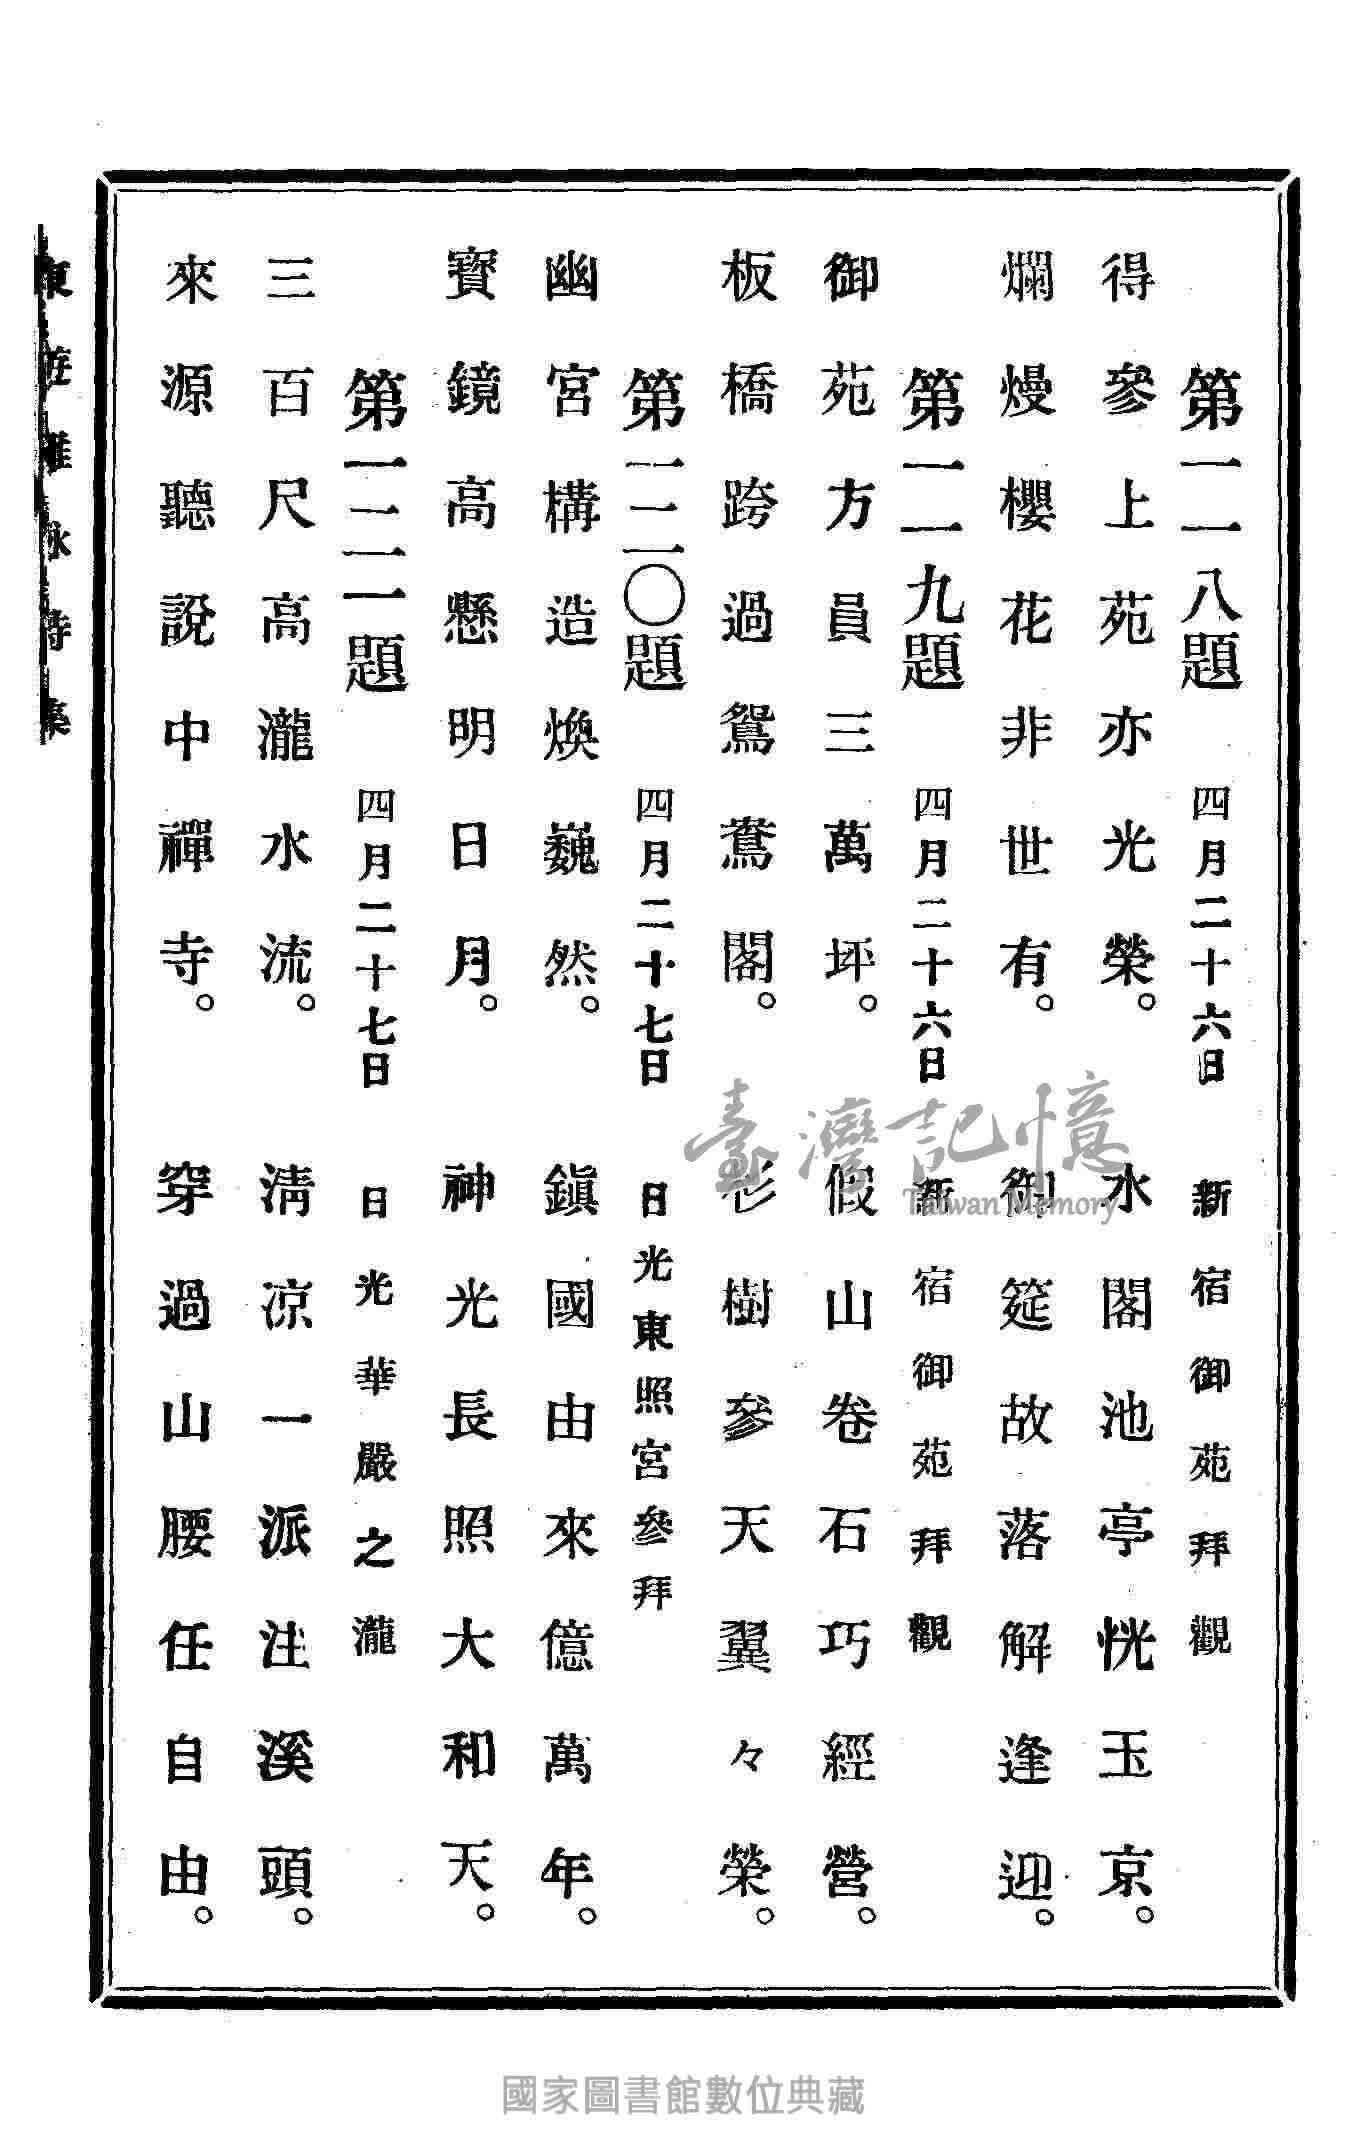 第一一八題　四月二十六日　新宿御苑拜觀
得參上苑亦光榮。　水閣池亭恍玉京。
爛熳櫻花非世有。　御筵故落解逢迎。
第一一九題　四月二十六日　新宿御苑拜觀
御苑方員三萬坪。　假山卷石巧經營。
板橋跨過鴛鴦閣。　杉樹參天翼々榮。
第一二〇題　四月二十七日　日光東照宮參拜
幽宮構造煥巍然。　鎭國由來億萬年。
寶鏡高懸明日月。　神光長照大和天。
第一二一題　四月二十七日　日光華嚴之瀧
三百尺高瀧水流。　淸凉一派注溪頭。
來源聽說中禪寺。　穿過山腰任自由。
東遊雅詠詩集
臺灣記憶
Taiwan Memory
國家圖書館數位典藏